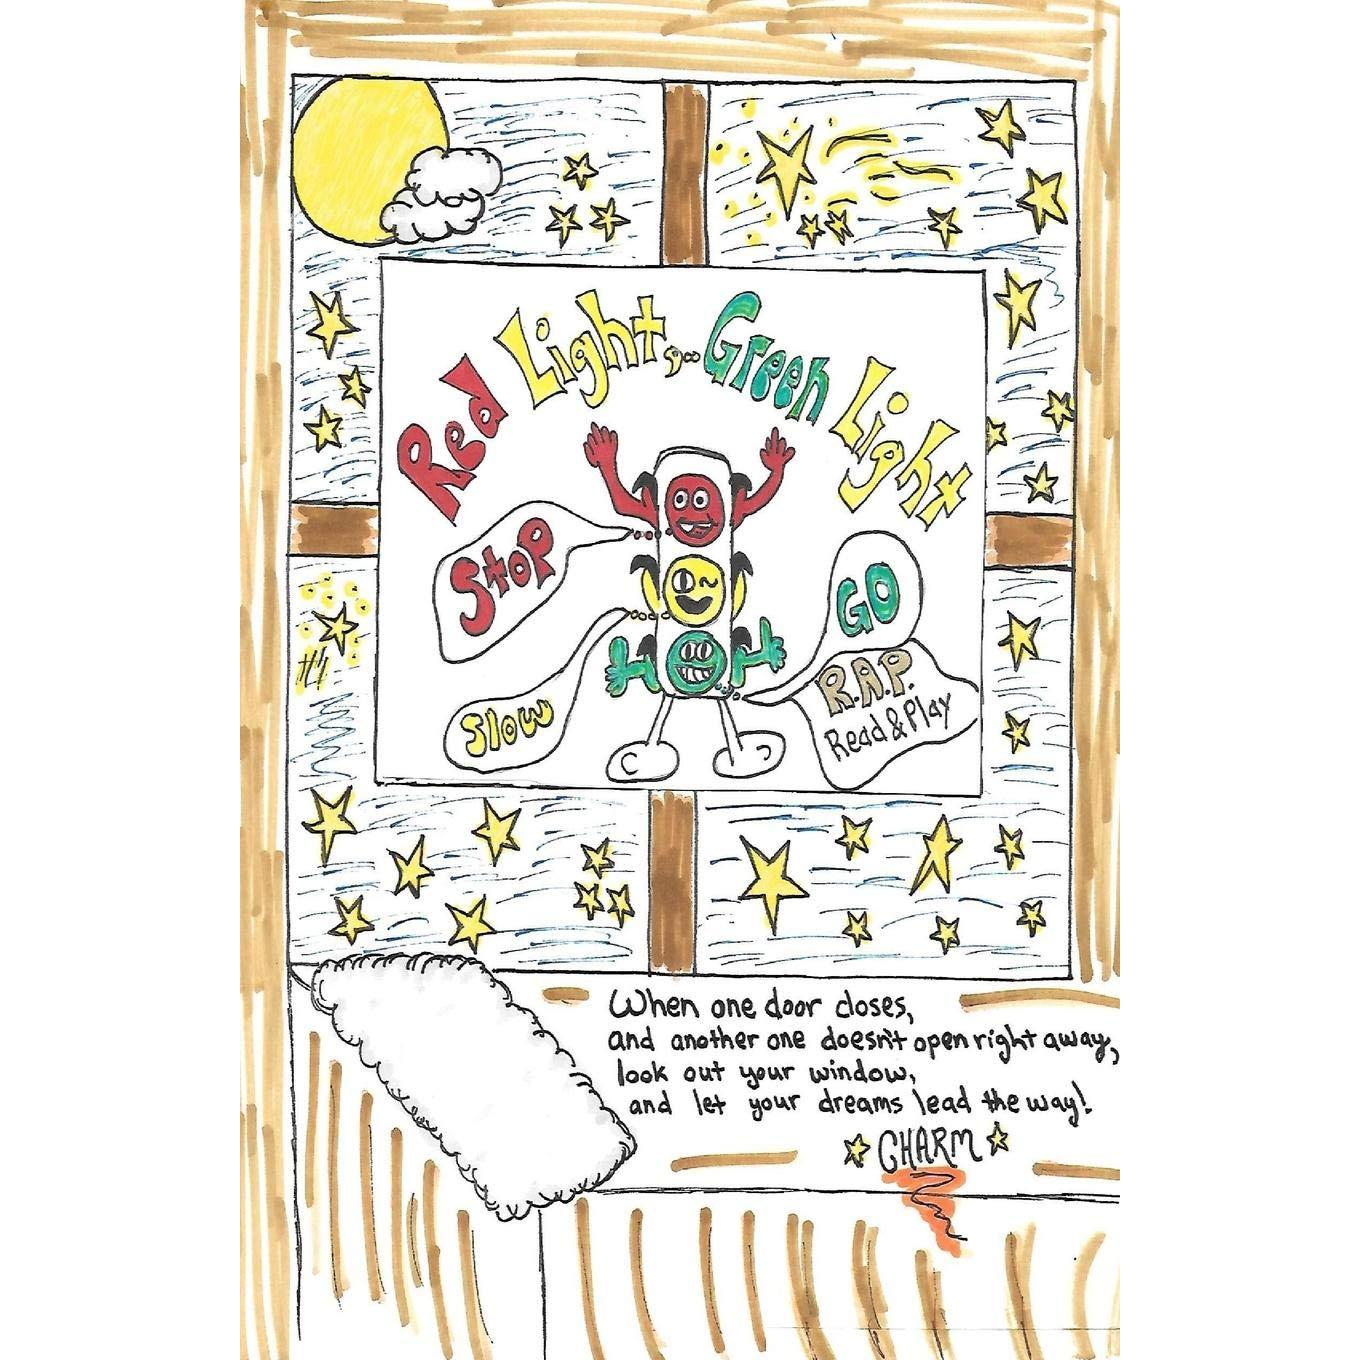 Red Light,... Green Light
Stop
GO
Slow
R.A.P.
Read & Play
#1
When one door closes,
and another one doesn't open right away,
look out your window,
and let your dreams lead the way!
CHARM